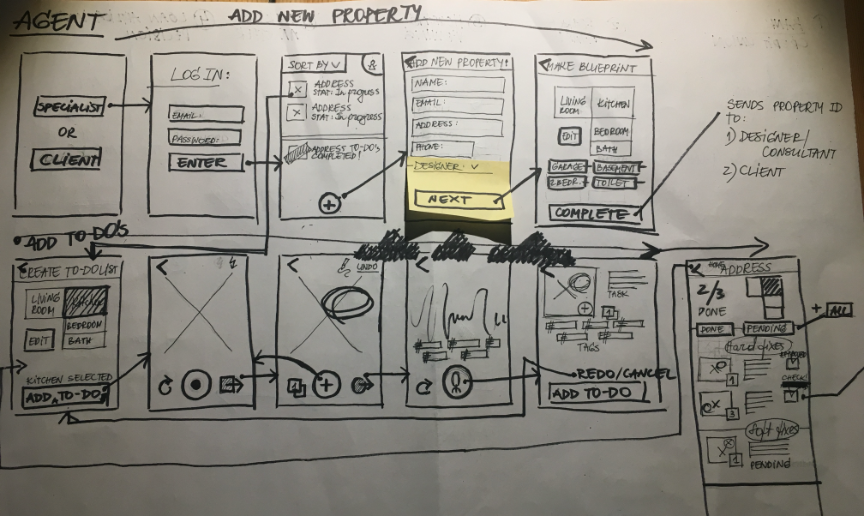 AGENT
ADD NEW PROPERTY
SPECIALIST
OR
CLIENT
LOG IN:
EMAIL:
PASSWORD:
ENTER
SORT BY
ADDRESS
STAT: In progress
ADDRESS
STAT: In progress
ADDRESS TO-DO'S
COMPLETED!
ADD NEW PROPERTY:
NAME:
EMAIL:
ADDRESS:
PHONE:
DESIGNER:
NEXT
MAKE BLUEPRINT
LIVING
ROOM
KITCHEN
EDIT
BEDROOM
BATH
GARAGE
BASEMENT
2 BEDR.
TOILET
COMPLETE
SENDS PROPERTY ID
TO:
1) DESIGNER/
CONSULTANT
2) CLIENT
• ADD TO-DO'S
CREATE TO-DO LIST
LIVING
ROOM
EDIT
BEDROOM
BATH
KITCHEN SELECTED
ADD TO-DO
UNDO
TASK
1
TAGS
REDO/CANCEL
ADD TO-DO
ADDRESS
2/3
DONE
DONE
PENDING
+ ALL
Hard fixes
1
CHECK
3
Soft fixes
1
PENDING